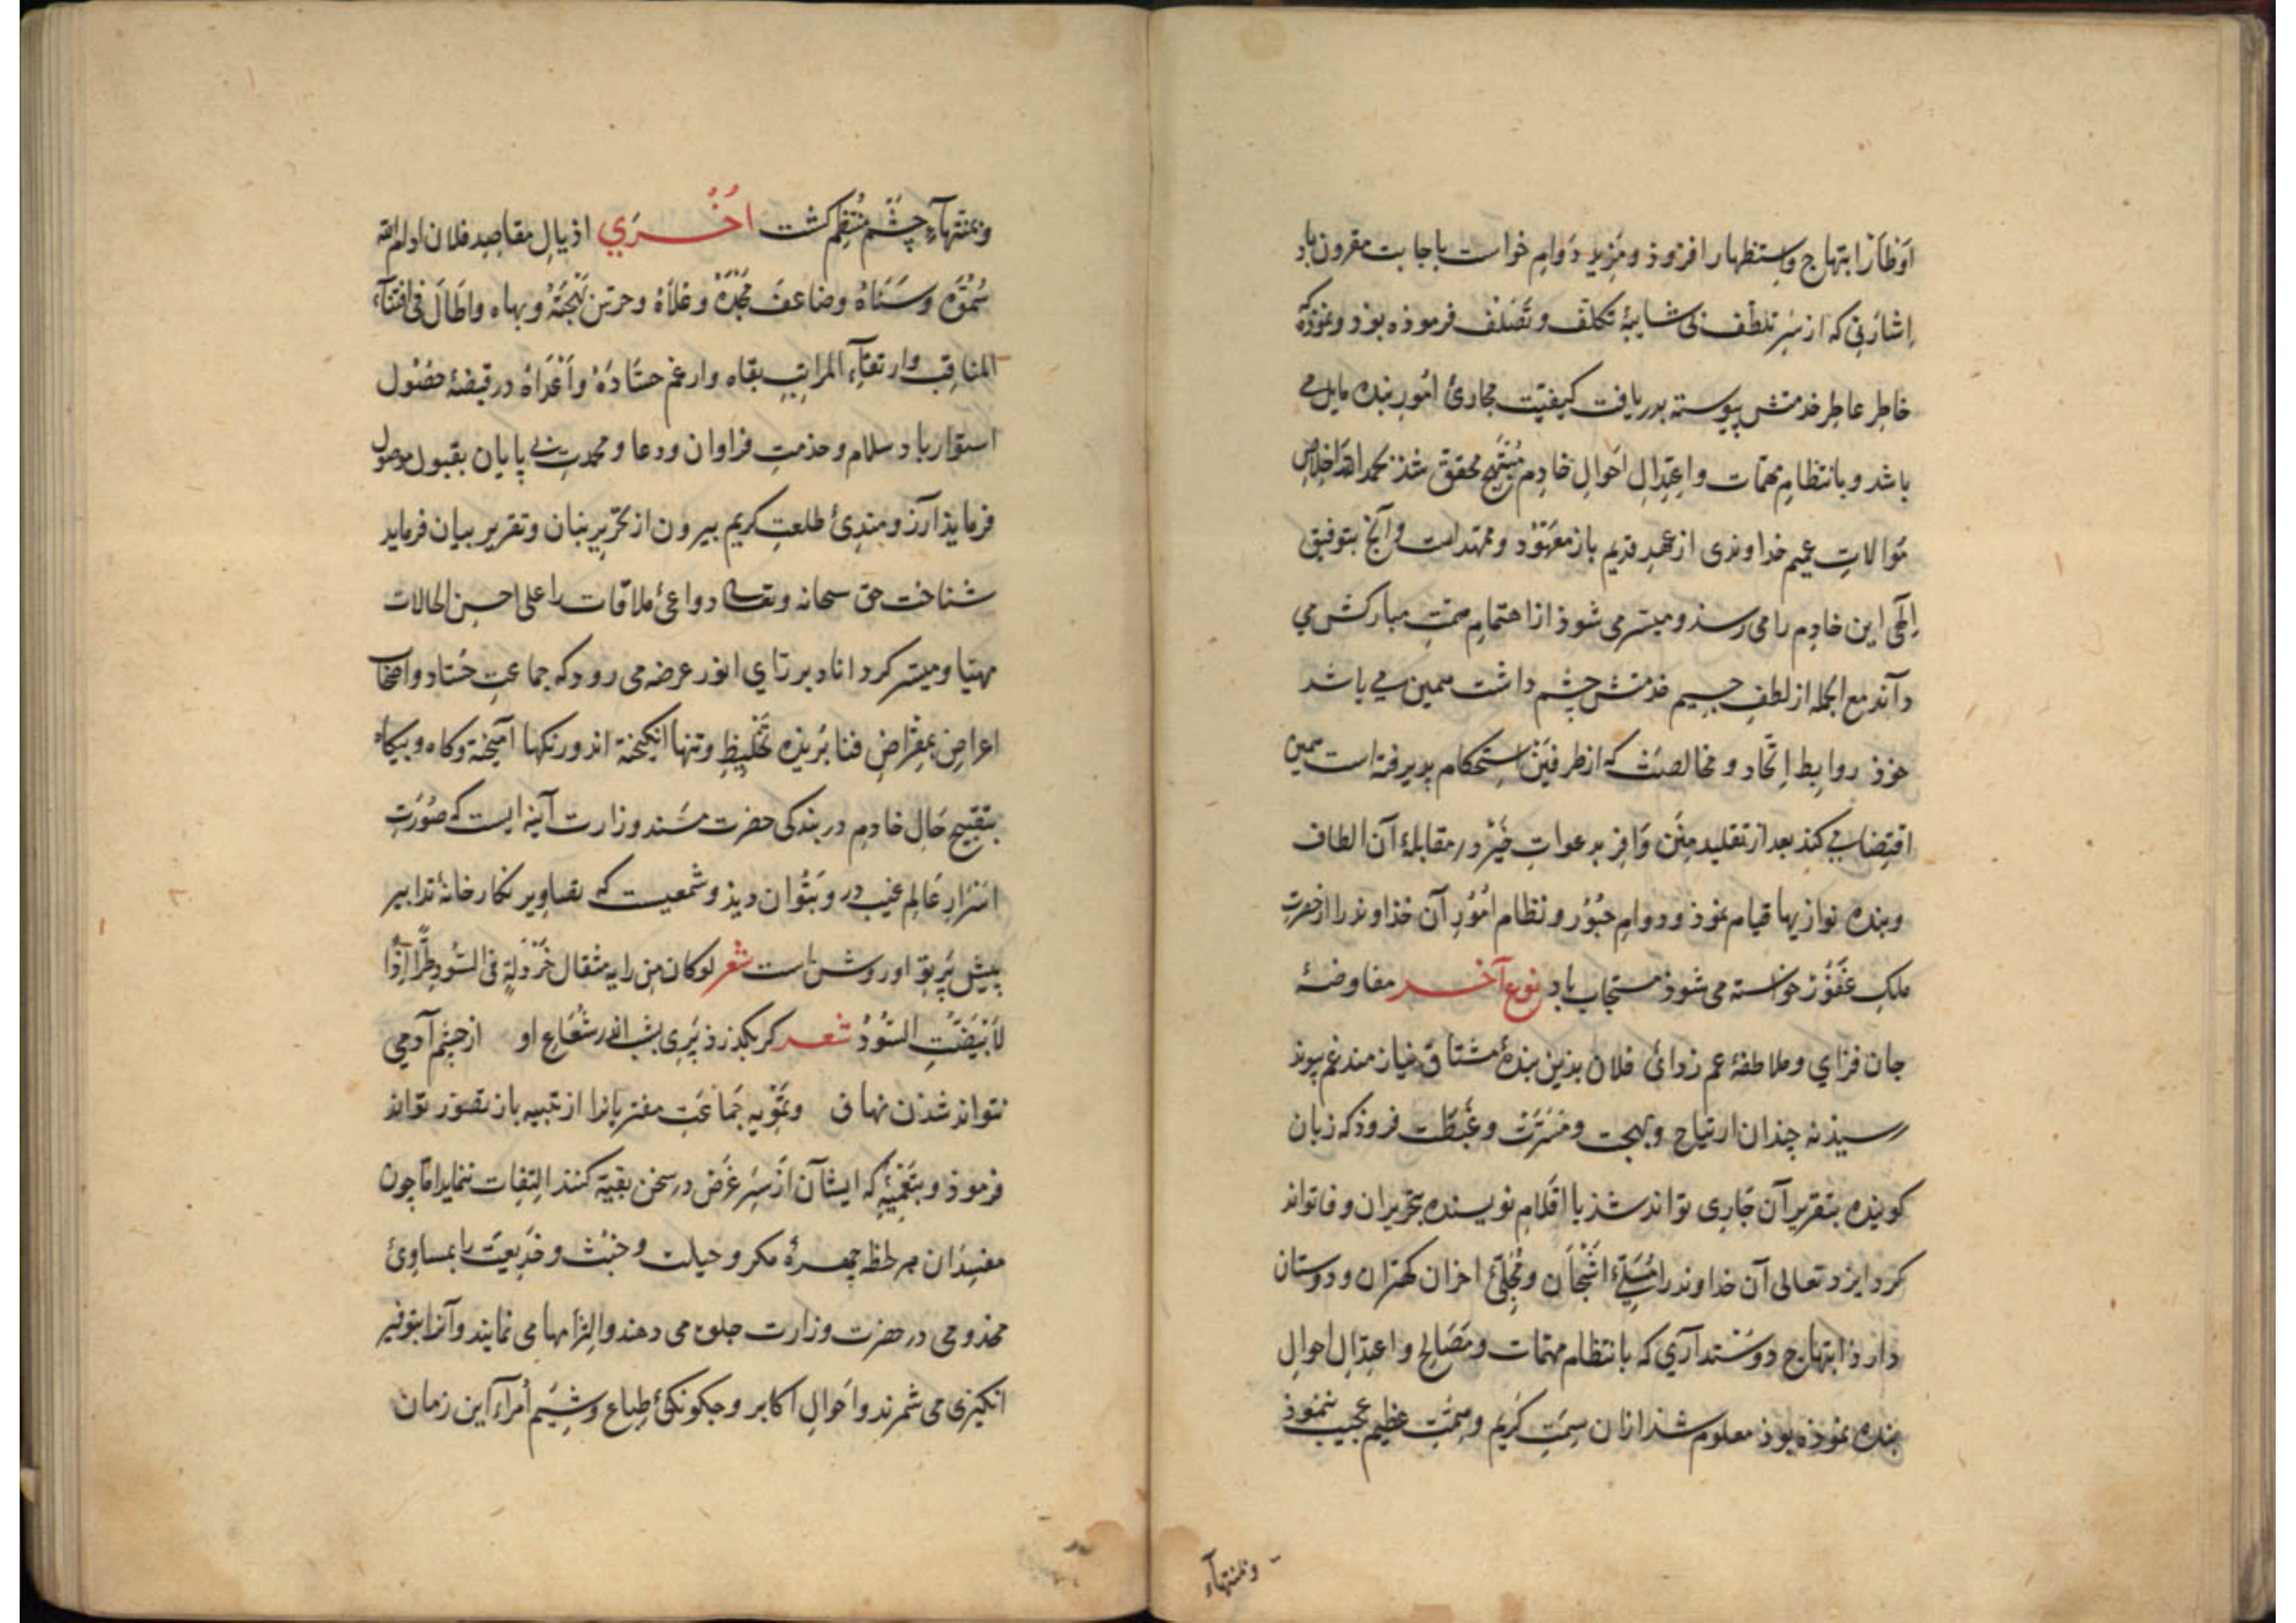 اوطار ابتهاج و استظهار افزوذ و مزید دوام خواست باجابت مقرون باد
اشارتی که از سر تلطف بی شایبهٔ تکلف و تصلف فرموذه بوذ و نموذه که
خاطر عاطر خدمتش پیوسته بدریافت کیفیت مجاریٔ امور بنده مایل می
باشد و بانتظام مهمات و اعتدال احوال خادم مبتهج محقق شذ بحمد الله اخلاص
موالات عمیم خداوندی از عهد قدیم باز معهود و ممهد است و آنچ بتوفیق
الهی این خادم را می رسذ و میسر می شوذ از اهتمام همت مبارکش می
دآند مع الجمله از لطف جسیم خدمتش چشم داشت همین می باشد
خوذ روابط اتحاد و مخالصت که از طرفین استحکام پذیرفته است همین
اقتضا می کند بعد از تقلید منن وافر بدعوات خیر در مقابلهٔ آن الطاف
و بنده نوازیها قیام نموذ و دوام حبور و نظام امور آن خذاوند را از حضرت
ملک غفور خواسته می شوذ مستجاب باد نوع آخر مفاوضهٔ
جان فزای و ملاطفهٔ غم زدائ فلان بذین بندهٔ مشتاق نیازمند غم پیوند
رسیذ نه چندان ارتیاح و بهجت و مسرت و غبطت فزوذ که زبان
کوینده بتقریر آن جاری تواند شذ یا اقلام نویسنده بتحریر ان وفا تواند
کرد ایزد تعالی آن خداوند را مسلیٔ اشجان و مجلیٔ احزان کهتران و دوستان
داراذ ابتهاج دوستداری که بانتظام مهمات و مصالح و اعتدال احوال
بنده نموذه بوذ معلوم شذ ازان سمت کریم و همت عظیم عجیب ننموذ
و بمنتهاء
و بمنتهآء چشم منتظم کشت اخری اذیال مقاصد فلان ادام الله
سموه و سناه و ضاعف مجده و علاه و بهجته و بهاه و اطال فی اقتنآء
المناقب و ارتقآء المراتب بقاه و ارغم حساده و اعداه در قبضهٔ حصول
استوار باد سلام و خذمت فراوان و دعا و محمدت بی پایان بقبول موصول
فرمایذ آرزومندیٔ طلعت کریم بیرون از تحریر بنان و تقریر بیان فرماید
شناخت حق سبحانه و تعالی دواعیٔ ملاقات را علی احسن الحالات
مهیا و میسر کرداناد بر رای انور عرضه می رود که جماعت حساد و اصحاب
اعراض بمقراض فنا بریذه تخلیط و فتنها انکیخته اند و رنکها آمیخته و کاه و بیکاه
بتقبیح حال خادم در بندکی حضرت مسند وزارت آینه ایست که صورت
اسرار عالم غیب در و بتوان دیذ و شمعیست که تصاویر نکارخانهٔ تدابیر
پیش پرتو او روشن است شعر لو کان من رایه مثقال خردلة فی السود طرا اذا
لابیضت السود شعر کر بکذرذ پری بشب اندر شعاع او از چشم آدمی
نتواند شذن نهان و تمویه جماعت مفتریانرا از تنبیه باز تصور تواند
فرموذ و بتعمیه که ایشان از سر غرض در سخن بقیه کنند التفات ننماید اما چون
مفسدان هر لحظه چهرهٔ مکر و حیلت و خبث و خدیعت را بمساویٔ
مخذومی در حضرت وزارت جلوه می دهند و الزامها می نمایند و آنرا بتوفیر
انکیزی می شمرند و احوال اکابر و چکونکیٔ طباع و شیم امرآء این زمان